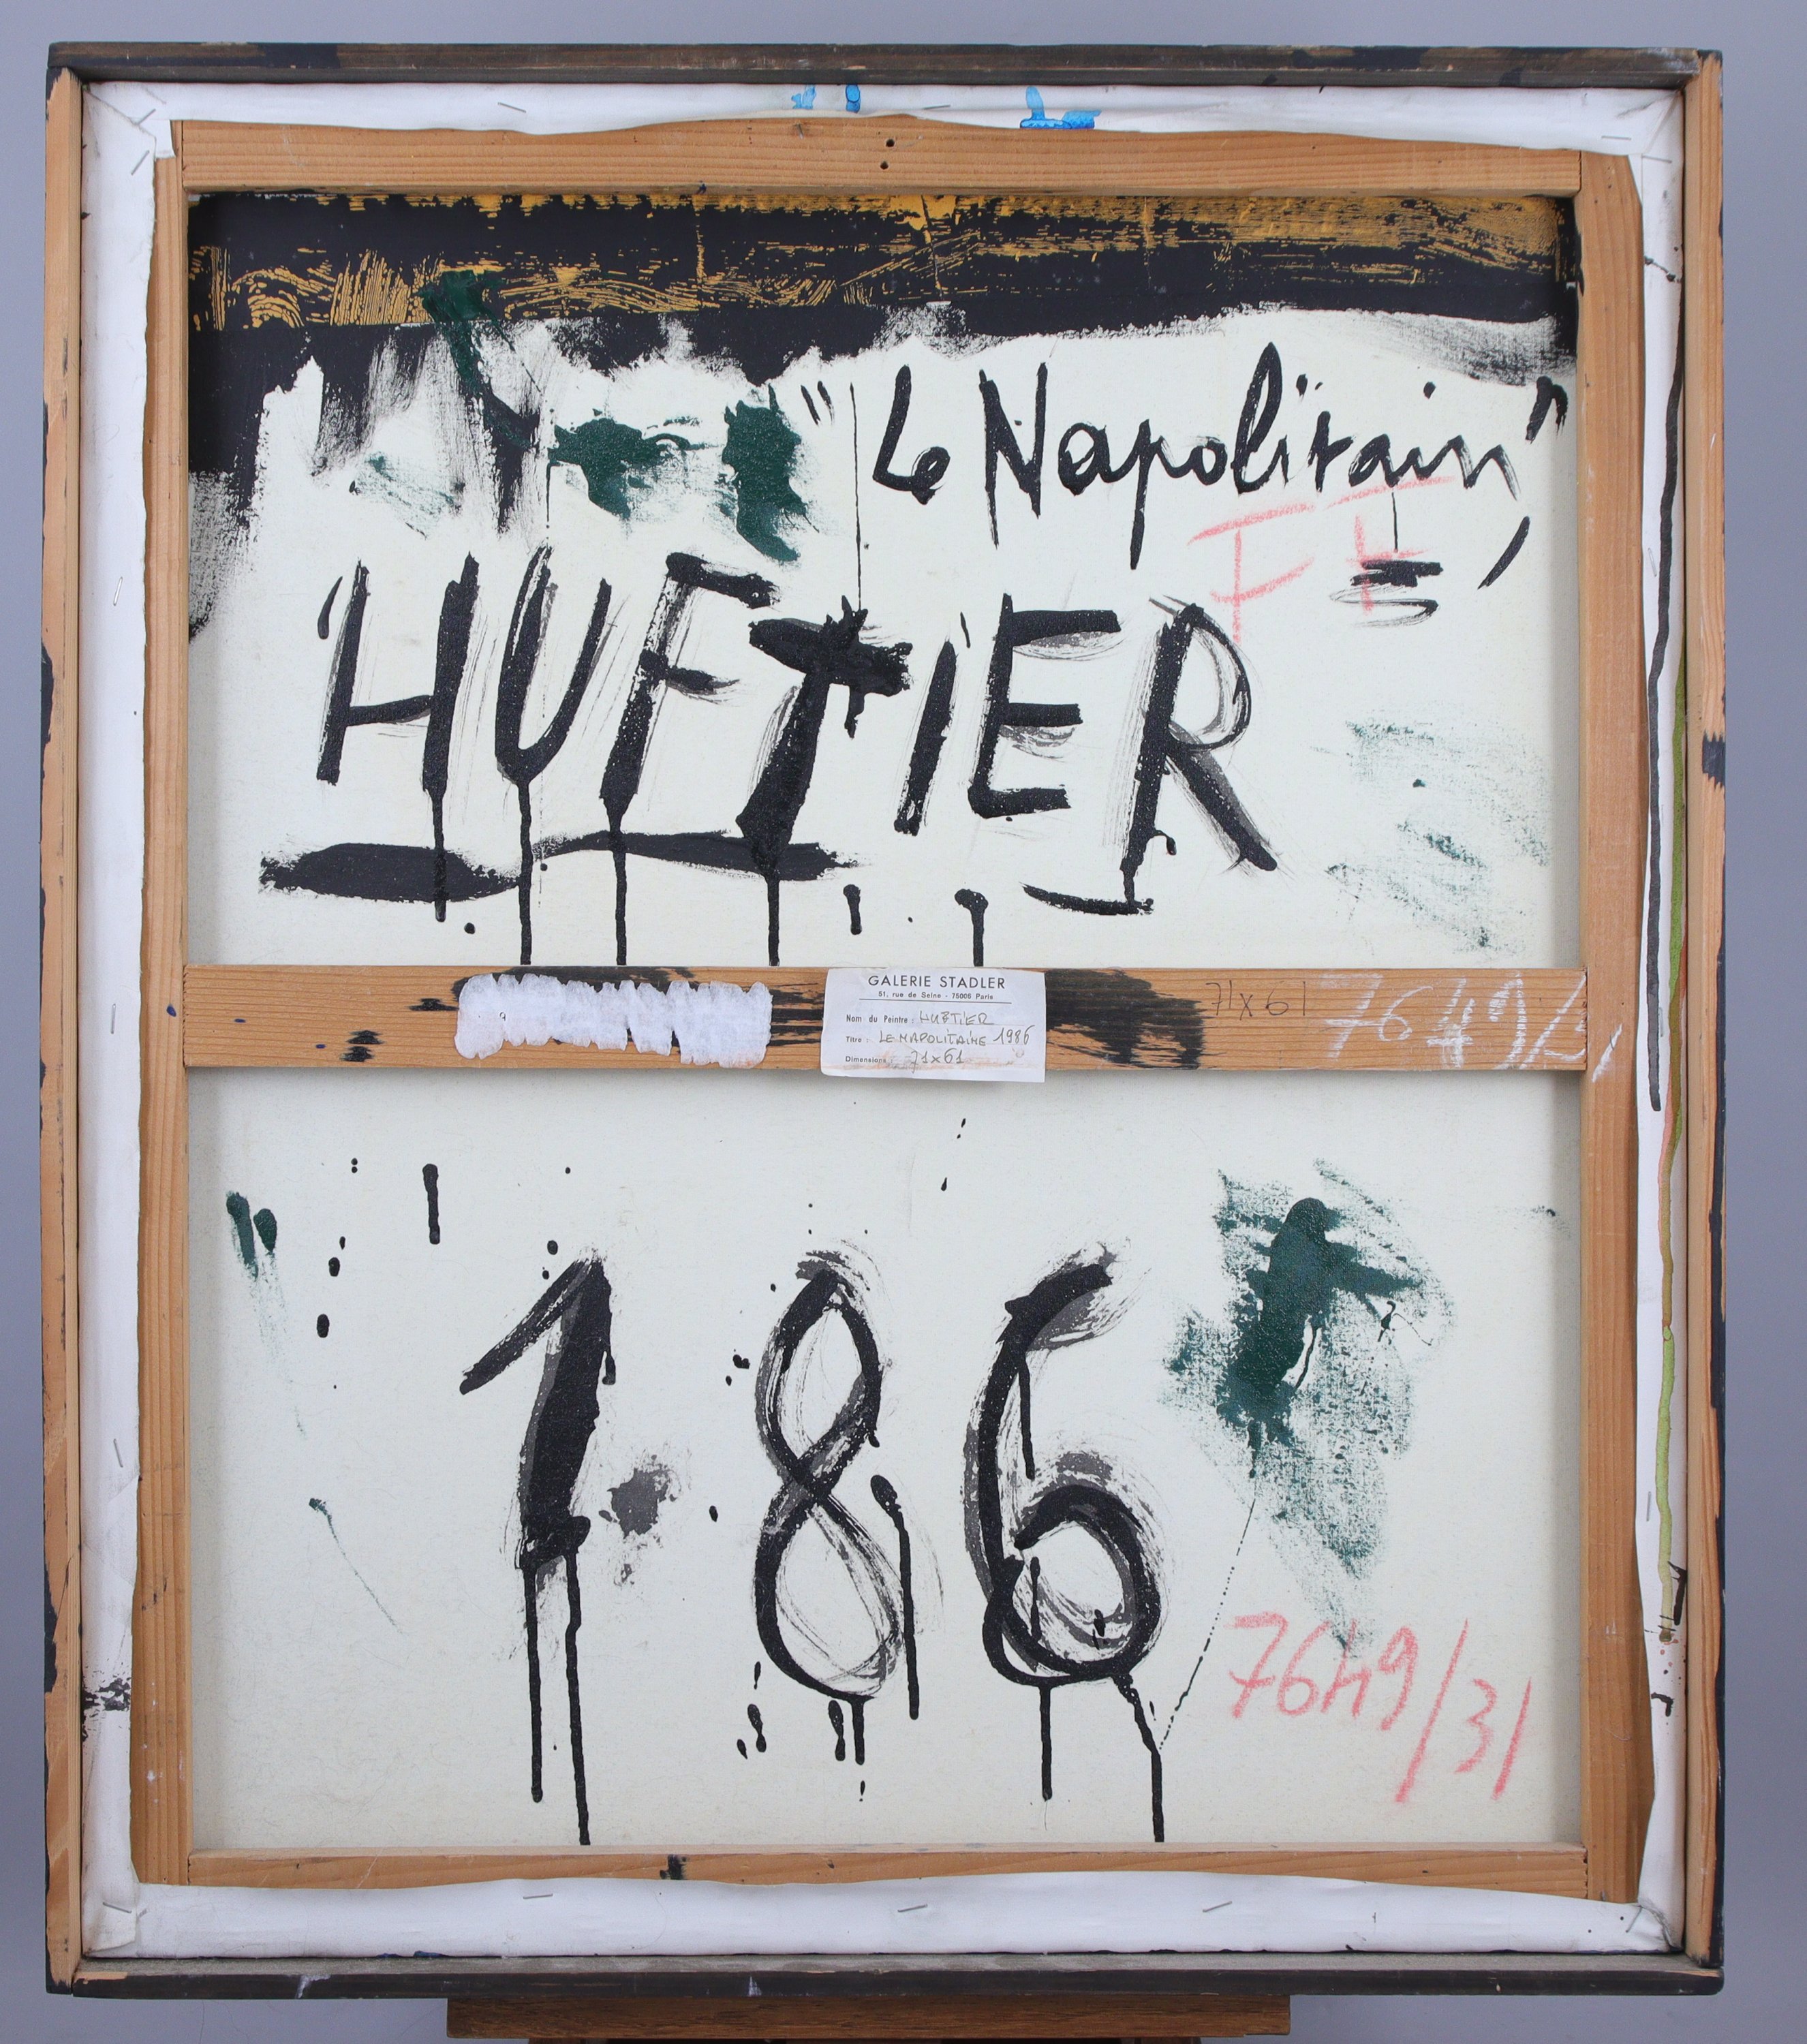 "Le Napolitain"
FF
HUFTIER
GALERIE STADLER
51, rue de Seine - 75006 Paris
Nom du Peintre : HUFTIER
Titre : LE NAPOLITAINE 1986
Dimensions 71x61
71x61
7649/
186
7649/31